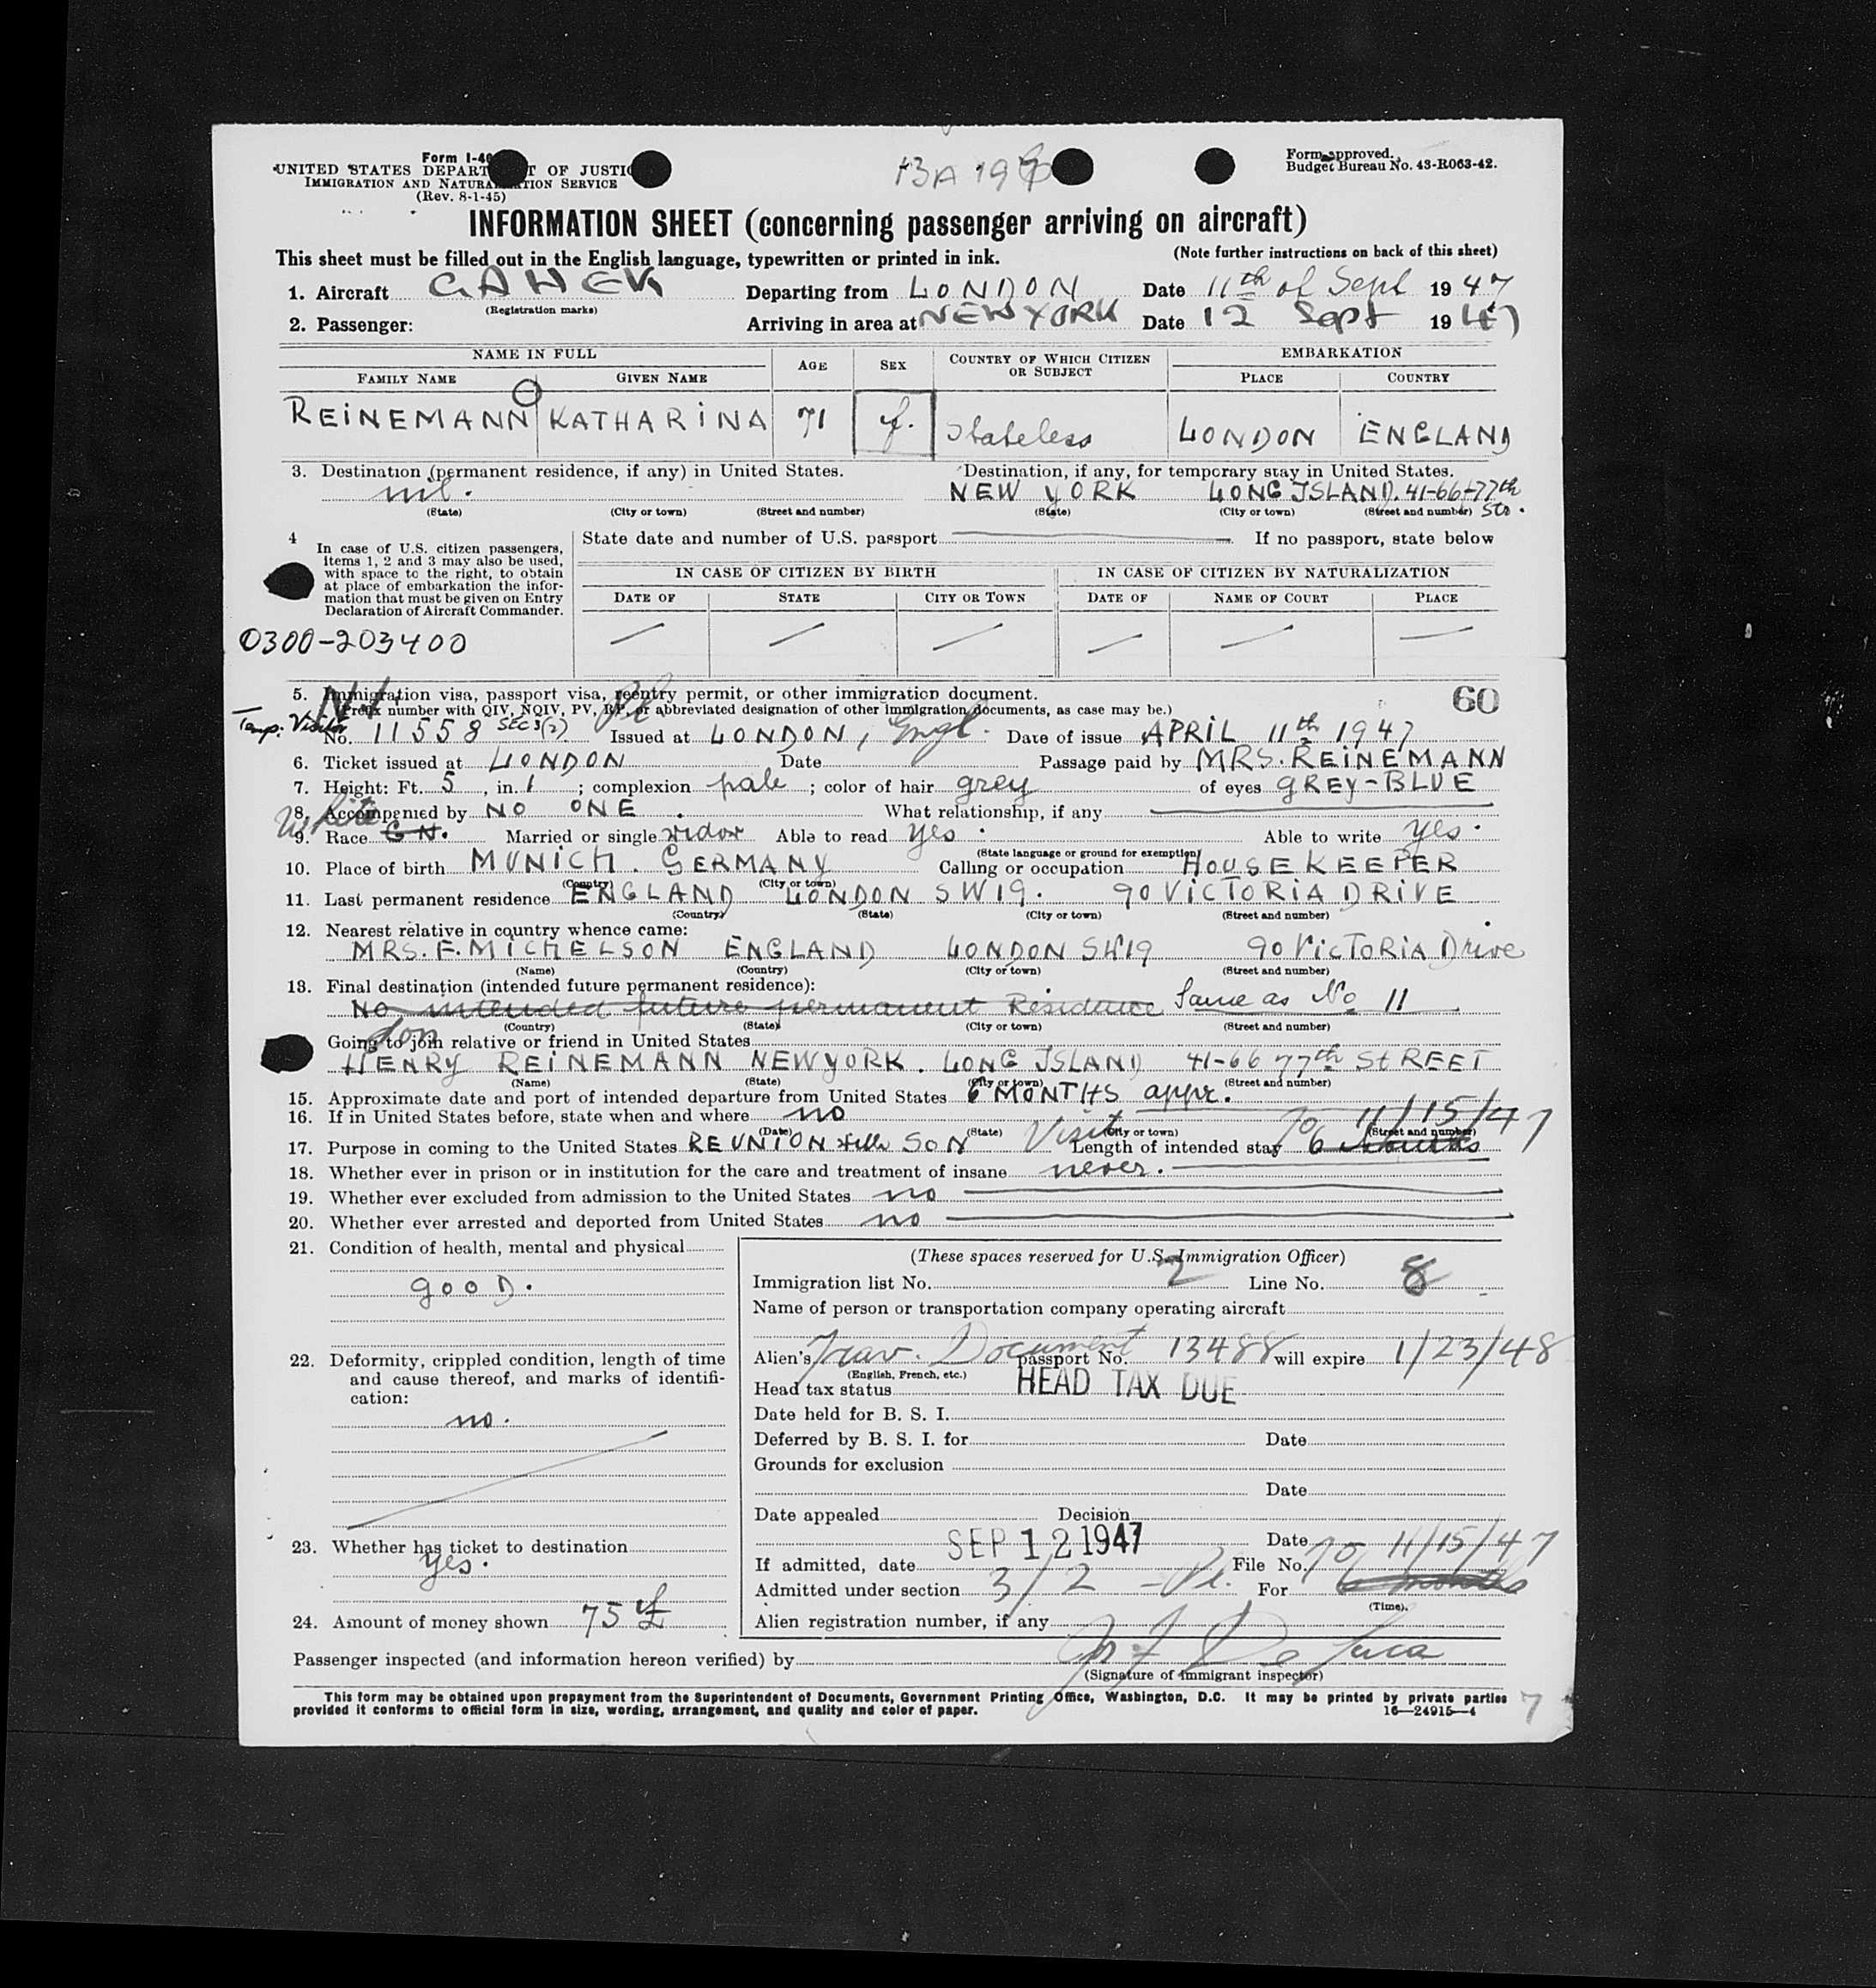 Form I-40
UNITED STATES DEPART T OF JUSTIC
IMMIGRATION AND NATURA TION SERVICE
(Rev. 8-1-45)
Form approved.
Budget Bureau No. 43-R063-42.
INFORMATION SHEET (concerning passenger arriving on aircraft)
This sheet must be filled out in the English language, typewritten or printed in ink. (Note further instructions on back of this sheet)
1. Aircraft GAHEK Departing from LONDON Date 11th of Sept 1947
(Registration marks)
2. Passenger: Arriving in area at NEW YORK Date 12 Sept 1947
NAME IN FULL AGE SEX COUNTRY OF WHICH CITIZEN OR SUBJECT EMBARKATION
FAMILY NAME GIVEN NAME PLACE COUNTRY
REINEMANN KATHARINA 71 f. Stateless LONDON ENGLAND
3. Destination (permanent residence, if any) in United States. Destination, if any, for temporary stay in United States.
nil. NEW YORK LONG ISLAND. 41-66-77th Str.
(State) (City or town) (Street and number) (State) (City or town) (Street and number)
4 In case of U.S. citizen passengers, items 1, 2 and 3 may also be used, with space to the right, to obtain at place of embarkation the information that must be given on Entry Declaration of Aircraft Commander.
State date and number of U.S. passport If no passport, state below
IN CASE OF CITIZEN BY BIRTH IN CASE OF CITIZEN BY NATURALIZATION
DATE OF STATE CITY OR TOWN DATE OF NAME OF COURT PLACE
0300-203400
5. Immigration visa, passport visa, reentry permit, or other immigration document. 60
(Prefix number with QIV, NQIV, PV, RP, or abbreviated designation of other immigration documents, as case may be.)
Temp. Visitor No. 11558 SEC 3(2) Issued at LONDON, Engl. Date of issue APRIL 11th 1947
6. Ticket issued at LONDON Date Passage paid by MRS. REINEMANN
7. Height: Ft. 5, in. 1; complexion pale; color of hair grey of eyes GREY-BLUE
8. Accompanied by NO ONE. What relationship, if any
White
9. Race G N. Married or single widow Able to read yes. Able to write yes.
(State language or ground for exemption)
10. Place of birth MUNICH. GERMANY Calling or occupation HOUSEKEEPER
(Country) (City or town)
11. Last permanent residence ENGLAND LONDON SW19. 90 VICTORIA DRIVE
(Country) (State) (City or town) (Street and number)
12. Nearest relative in country whence came:
MRS. F. MICHELSON ENGLAND LONDON SW19 90 VICTORIA Drive
(Name) (Country) (City or town) (Street and number)
13. Final destination (intended future permanent residence):
No intended future permanent Residence Same as No 11
(Country) (State) (City or town) (Street and number)
son
Going to join relative or friend in United States
HENRY REINEMANN NEW YORK. LONG ISLAND 41-66 77th STREET
(Name) (State) (City or town) (Street and number)
15. Approximate date and port of intended departure from United States 6 MONTHS appr.
16. If in United States before, state when and where no
(Date) (State) (City or town) (Street and number)
To 11/15/47
17. Purpose in coming to the United States REUNION with SON Visit Length of intended stay 6 Months
18. Whether ever in prison or in institution for the care and treatment of insane never.
19. Whether ever excluded from admission to the United States no
20. Whether ever arrested and deported from United States no
21. Condition of health, mental and physical
good.
22. Deformity, crippled condition, length of time and cause thereof, and marks of identification:
no.
23. Whether has ticket to destination
yes.
24. Amount of money shown 75 £
(These spaces reserved for U.S. Immigration Officer)
Immigration list No. 2 Line No. 8
Name of person or transportation company operating aircraft
Alien's Trav. Document passport No. 13488 will expire 1/23/48
(English, French, etc.)
Head tax status HEAD TAX DUE
Date held for B. S. I.
Deferred by B. S. I. for Date
Grounds for exclusion
Date
Date appealed Decision
Date
If admitted, date SEP 12 1947 File No. To 11/15/47
Admitted under section 3/2 For 6 months
(Time).
Alien registration number, if any
Passenger inspected (and information hereon verified) by De Luca
(Signature of immigrant inspector)
This form may be obtained upon prepayment from the Superintendent of Documents, Government Printing Office, Washington, D.C. It may be printed by private parties
provided it conforms to official form in size, wording, arrangement, and quality and color of paper. 16—24915-4
7